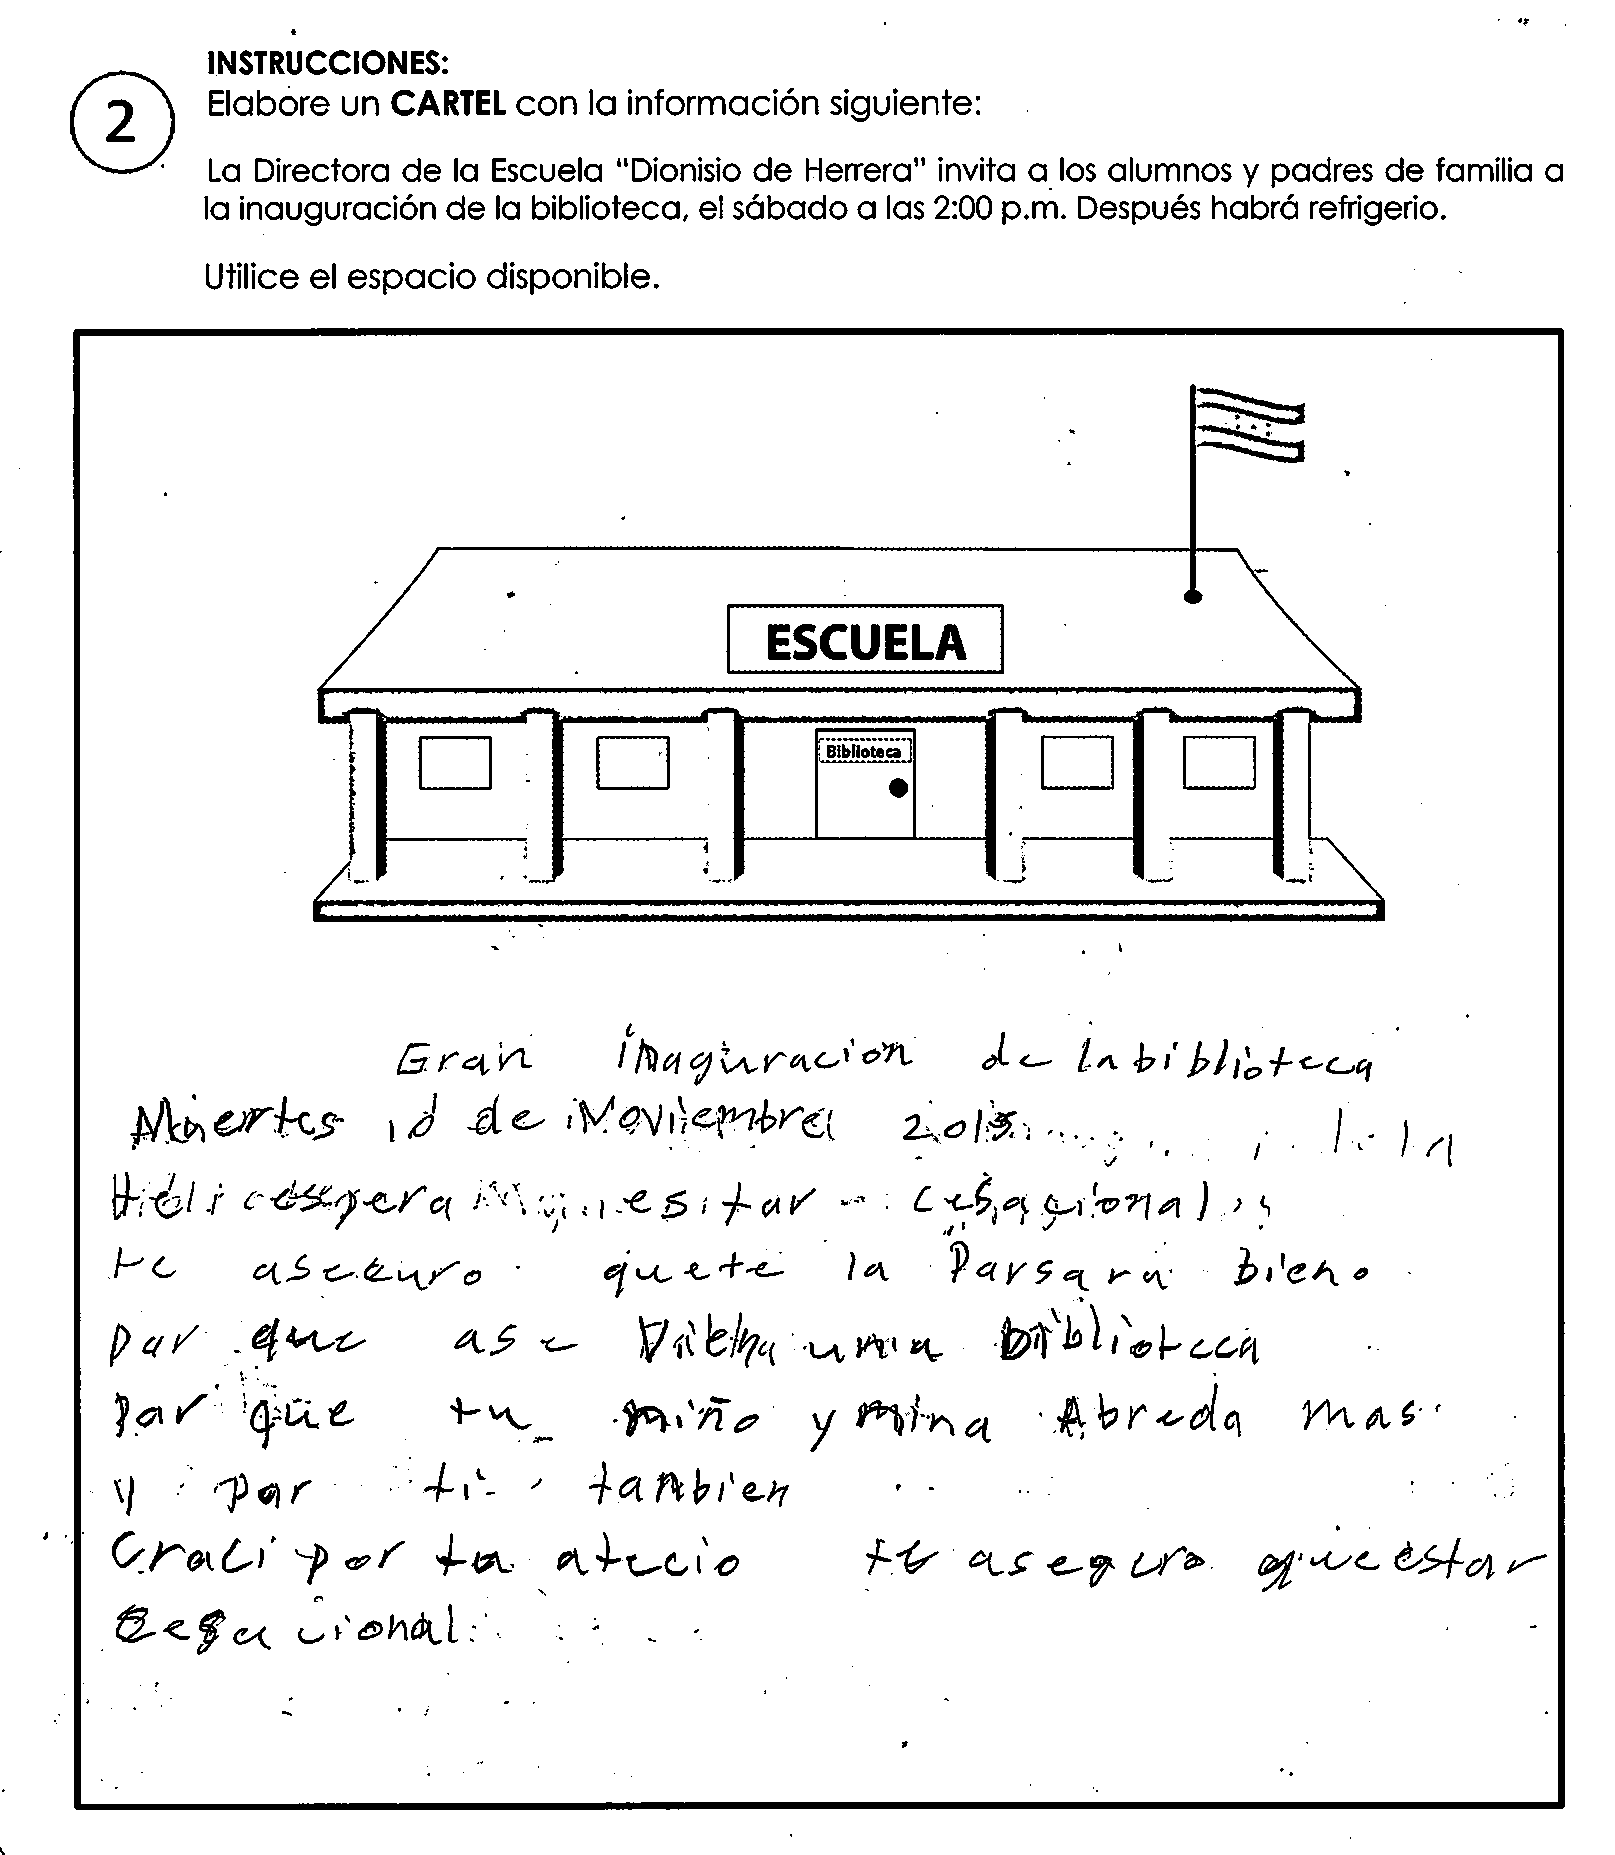 INSTRUCCIONES:
2
Elabore un CARTEL con la información siguiente:
La Directora de la Escuela "Dionisio de Herrera" invita a los alumnos y padres de familia a
la inauguración de la biblioteca, el sábado a las 2:00 p.m. Después habrá refrigerio.
Utilice el espacio disponible.
ESCUELA
Biblioteca
Gran inaguracion de la biblioteca
de Noviembre
te aseguro que te la Parsara bieno
par que ase una biblioteca
Par que tu niño y nina Abreda mas
y par ti tambien
Graci por tu atecio te aseguro que estar